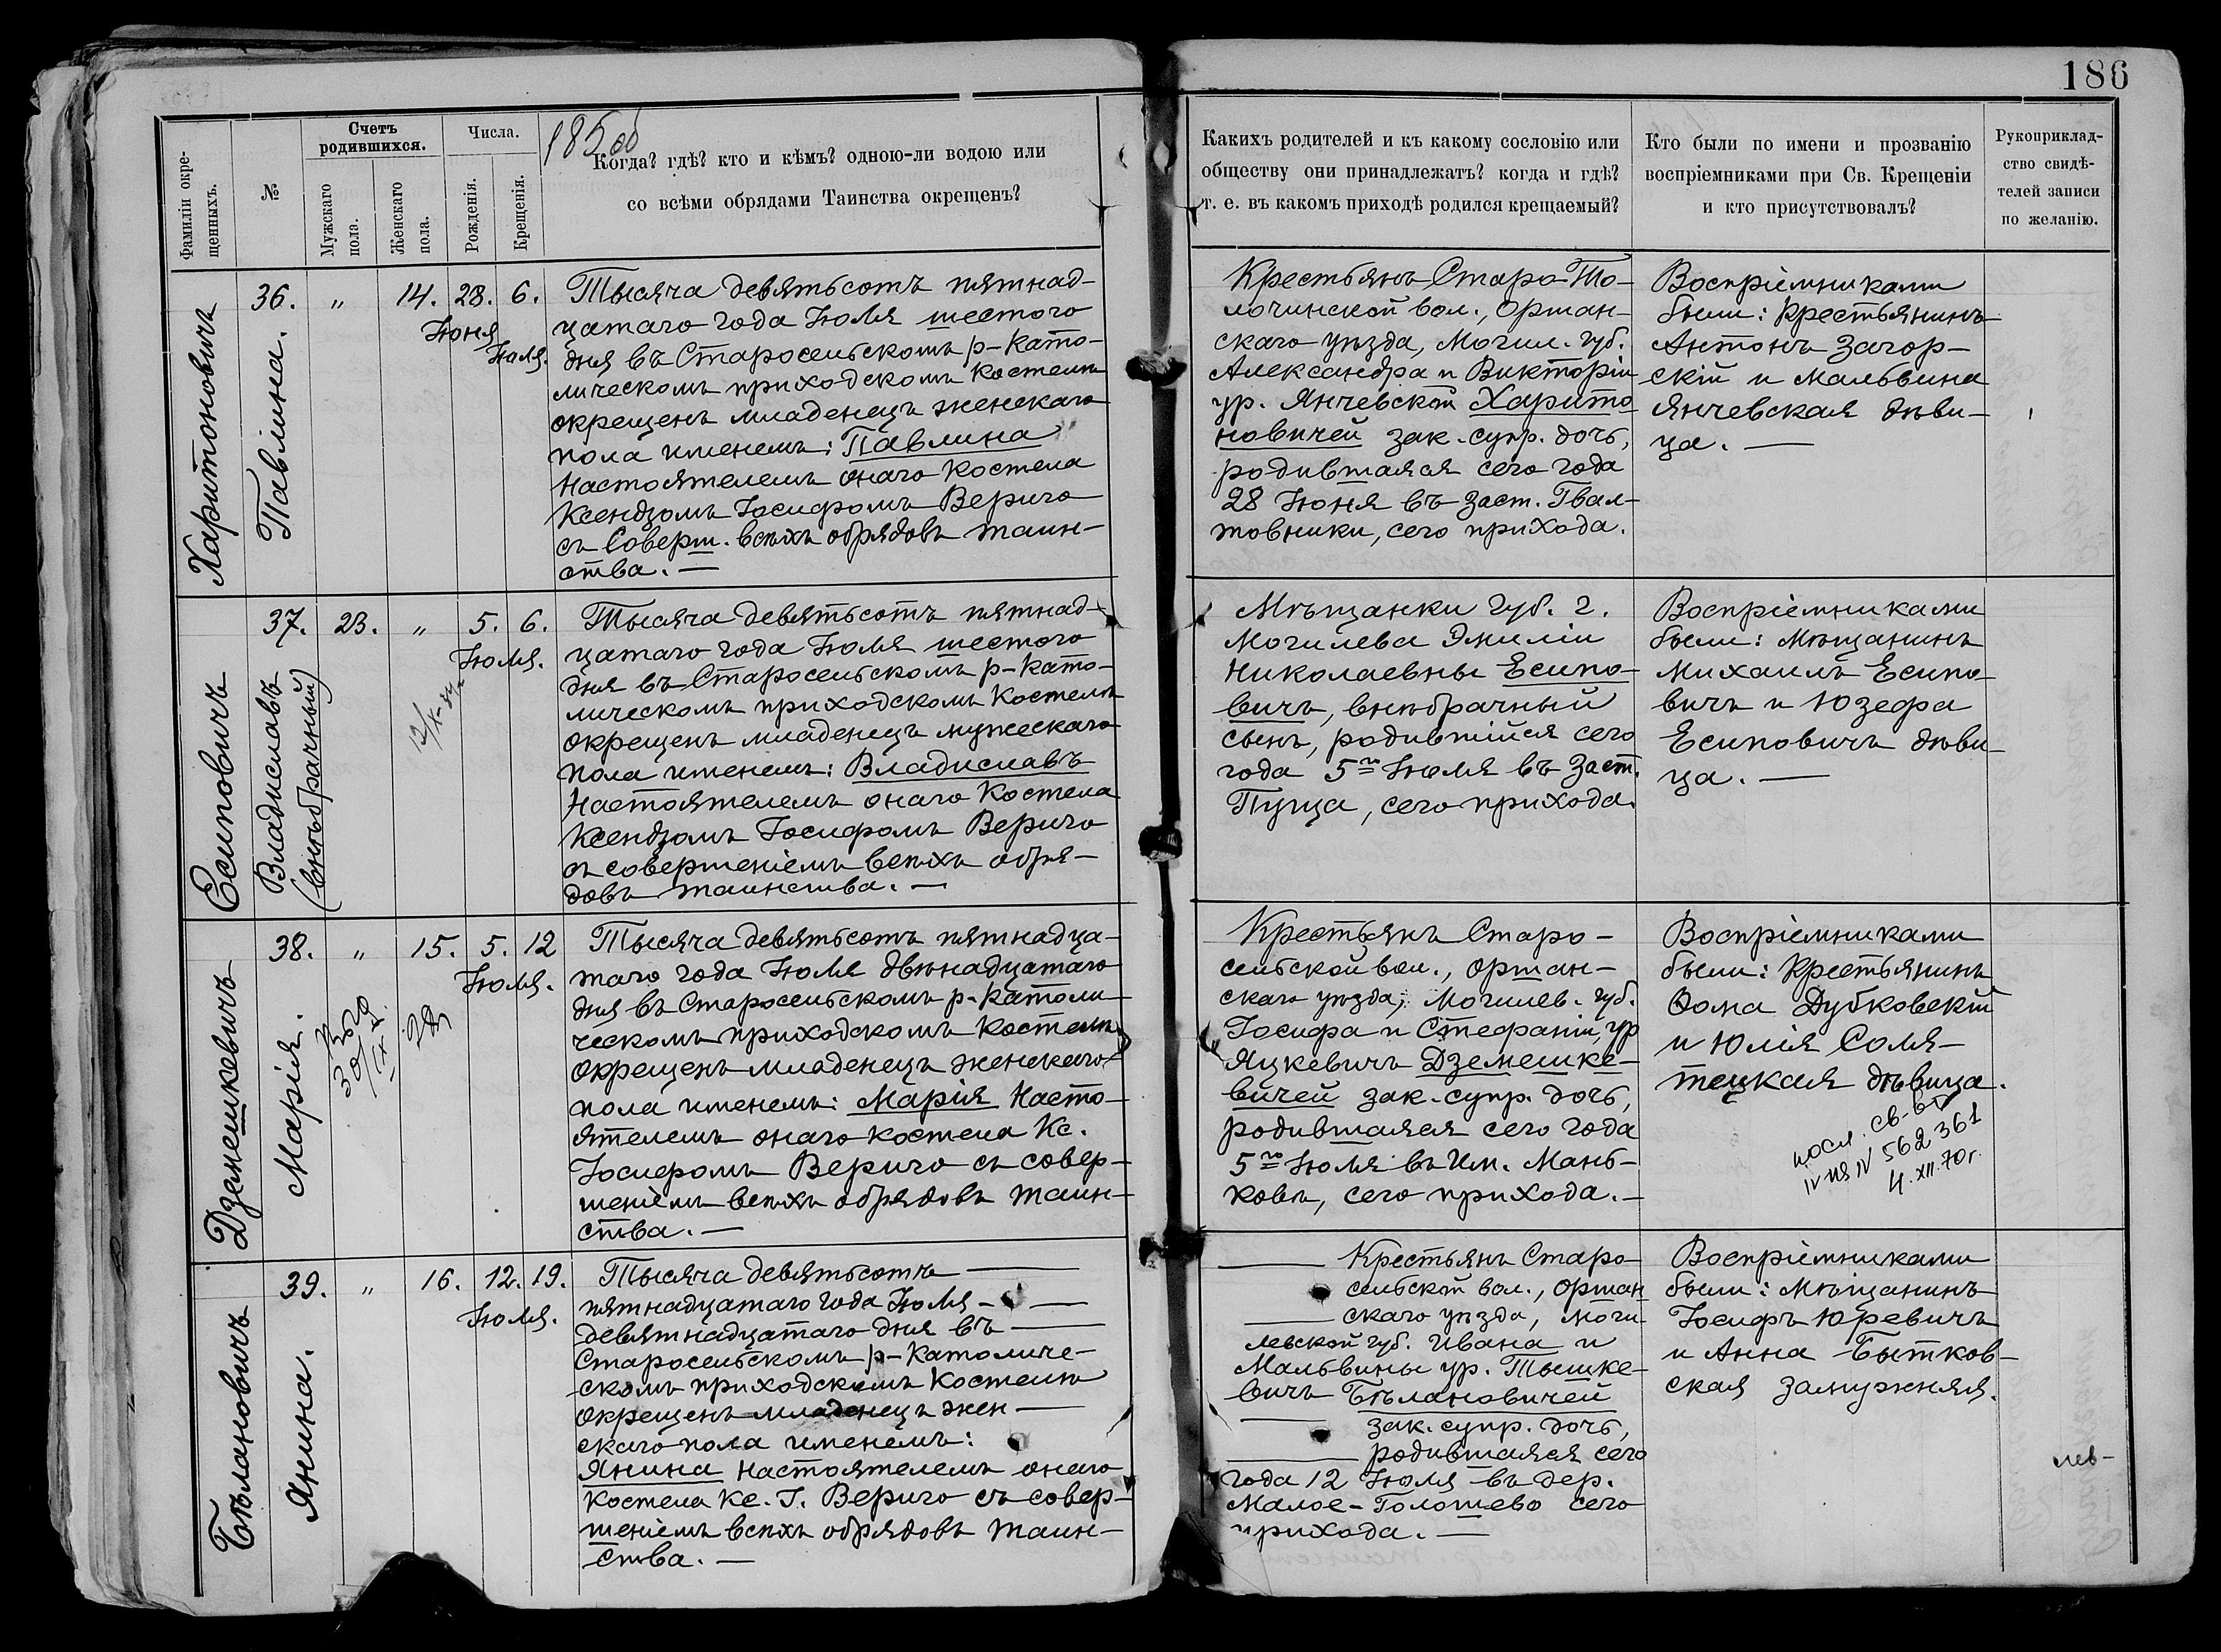 186
185 об
Фамиліи окре-
щенныхъ.
№
Счетъ
родившихся.
Мужскаго
пола.
Женскаго
пола.
Числа.
Рожденія.
Крещенія.
Когда? гдѣ? кто и кѣмъ? одною-ли водою или
со всѣми обрядами Таинства окрещенъ?
Какихъ родителей и къ какому сословію или
обществу они принадлежатъ? когда и гдѣ?
т. е. въ какомъ приходѣ родился крещаемый?
Кто были по имени и прозванію
воспріемниками при Св. Крещеніи
и кто присутствовалъ?
Рукоприклад-
ство свидѣ-
телей записи
по желанію.
Харитоновичъ
36.
Павлина.
„
14.
28. 6.
Іюня
Іюля.
Тысяча девятьсотъ пятнад-
цатаго года Іюля шестого
дня въ Старосельскомъ р-като-
лическомъ приходскомъ костелѣ
окрещенъ младенецъ женскаго
пола именемъ: Павлина
Настоятелемъ онаго Костела
Ксендзомъ Іосифомъ Вериго
съ Соверш. всѣхъ обрядовъ таин-
ства. —
Крестьянъ Старо-То-
лочинской вол., Оршан-
скаго уѣзда, Могил. губ.
Александра и Викторіи
ур. Янчевской Харито-
новичей зак. супр. дочь,
родившаяся сего года
28 Іюня въ заст. Гвал-
товники, сего прихода.
Воспріемниками
были: Крестьянинъ
Антонъ Загор-
скій и Мальвина
Янчевская дѣви-
ца. —
Есиповичъ
37.
Владиславъ
(внѣбрачный)
23.
„
5. 6.
Іюля.
Тысяча девятьсотъ пятнад-
цатаго года Іюля шестого
дня въ Старосельскомъ р-като-
лическомъ приходскомъ Костелѣ
окрещенъ младенецъ мужескаго
пола именемъ: Владиславъ
Настоятелемъ онаго Костела
Ксендзомъ Іосифомъ Вериго
съ совершеніемъ всѣхъ обря-
довъ таинства. —
Мѣщанки губ. г.
Могилева Эмиліи
Николаевны Есипо-
вичъ, внѣбрачный
сынъ, родившійся сего
года 5го Іюля въ Заст.
Пуща, сего прихода.
Воспріемниками
были: Мѣщанинъ
Михаилъ Есипо-
вичъ и Юзефа
Есиповичъ дѣви-
ца. —
Дземешкевичъ
38.
Марія.
„
15.
5. 12
Іюля.
Тысяча девятьсотъ пятнадца-
таго года Іюля двѣнадцатаго
дня въ Старосельскомъ р-католи-
ческомъ приходскомъ костелѣ
окрещенъ младенецъ женскаго
пола именемъ: Марія Насто-
ятелемъ онаго костела Кс.
Іосифомъ Вериго съ совер-
шеніемъ всѣхъ обрядовъ таин-
ства. —
Крестьянъ Старо-
сельской вол., Оршан-
скаго уѣзда, Могилев. губ.
Іосифа и Стефаніи, ур
Яцкевичъ Дземешке-
вичей зак. супр. дочь,
родившаяся сего года
5го Іюля въ Им. Мань-
ковѣ, сего прихода. —
Воспріемниками
были: Крестьянинъ
Ѳома Дубковскій
и Юлія Соля-
тецкая дѣвица.
посл. св-во
562361
4.XII.70г.
Бѣлановичъ
39.
Янина.
„
16.
12. 19.
Іюля.
Тысяча девятьсотъ —
пятнадцатаго года Іюля — —
девятнадцатаго дня въ —
Старосельскомъ р-католиче-
скомъ приходскомъ Костелѣ
окрещенъ младенецъ жен —
скаго пола именемъ:
Янина Настоятелемъ онаго
костела Кс. І. Вериго съ совер-
шеніемъ всѣхъ обрядовъ таин-
ства. —
— Крестьянъ Старо-
сельской вол., Оршан-
— скаго уѣзда, Моги-
левской губ. Ивана и
Мальвины ур. Тышке-
вичъ Бѣлановичей
— зак. супр. дочь,
— родившаяся сего
года 12 Іюля въ дер.
Малое-Голошево сего
прихода. —
Воспріемниками
были: Мѣщанинъ
Іосифъ Юревичъ
и Анна Бытков-
ская замужняя.